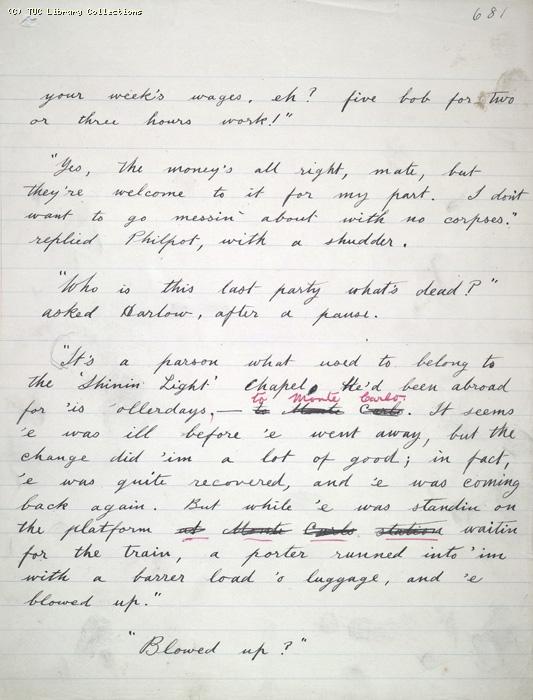 (C) TUC Library Collections
681
your week's wages, eh? five bob for two
or three hours work!"
"Yes, the money's all right, mate, but
they're welcome to it for my part. I don't
want to go messin' about with no corpses."
replied Philpot, with a shudder.
"Who is this last party what's dead?"
asked Harlow, after a pause.
"It's a parson what used to belong to
the 'Shinin Light' Chapel. He'd been abroad
to Monte Carlo
for 'is 'ollerdays, — to Monte Carlo. It seems
'e was ill before 'e went away, but the
change did 'im a lot of good; in fact,
'e was quite recovered, and 'e was coming
back again. But while 'e was standin on
the platform at Monte Carlo station waitin
for the train, a porter runned into 'im
with a barrer load 'o luggage, and 'e
blowed up."
"Blowed up?"